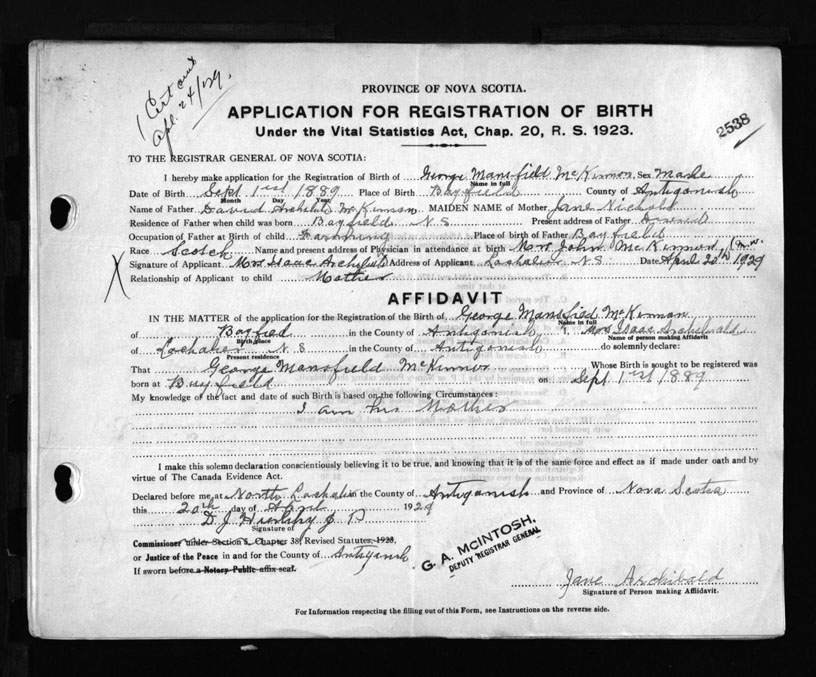 1 Cert out
Apl. 24/29.
PROVINCE OF NOVA SCOTIA.
APPLICATION FOR REGISTRATION OF BIRTH
Under the Vital Statistics Act, Chap. 20, R. S. 1923.
2538
TO THE REGISTRAR GENERAL OF NOVA SCOTIA:
I hereby make application for the Registration of Birth of George Mansfield McKinnon Sex Male
Name in full
Date of Birth Sept 1st 1889 Place of Birth Bayfield County of Antigonish
Month Day Year
Name of Father David McKinnon MAIDEN NAME of Mother Jane Nichols
Residence of Father when child was born Bayfield N S Present address of Father
Occupation of Father at Birth of child Farming Place of birth of Father Bayfield
Race Scotch Name and present address of Physician in attendance at birth Mrs John McKinnon
Signature of Applicant Mrs Isaac Archibald Address of Applicant Lochaber N S Date April 20th 1929
X Relationship of Applicant to child Mother
AFFIDAVIT
IN THE MATTER of the application for the Registration of the Birth of George Mansfield McKinnon
Name in full
of Bayfied in the County of Antigonish I, Mrs Isaac Archibald
Birthplace Name of person making Affidavit
of Lochaber N S in the County of Antigonish do solemnly declare:
Present residence
That George Mansfield McKinnon Whose Birth is sought to be registered was
born at Bayfield on Sept 1st 1889
My knowledge of the fact and date of such Birth is based on the following Circumstances:
I am his Mother
I make this solemn declaration conscientiously believing it to be true, and knowing that it is of the same force and effect as if made under oath and by
virtue of The Canada Evidence Act.
Declared before me at North Lochaber in the County of Antigonish and Province of Nova Scotia
this 20th day of April 1929
D. J.
Signature of
Commissioner under Section 5, Chapter 38, Revised Statutes, 1923,
or Justice of the Peace in and for the County of Antigonish
If sworn before a Notary Public affix seal.
G. A. MCINTOSH,
DEPUTY REGISTRAR GENERAL
Jane Archibald
Signature of Person making Affidavit.
For Information respecting the filling out of this Form, see Instructions on the reverse side.